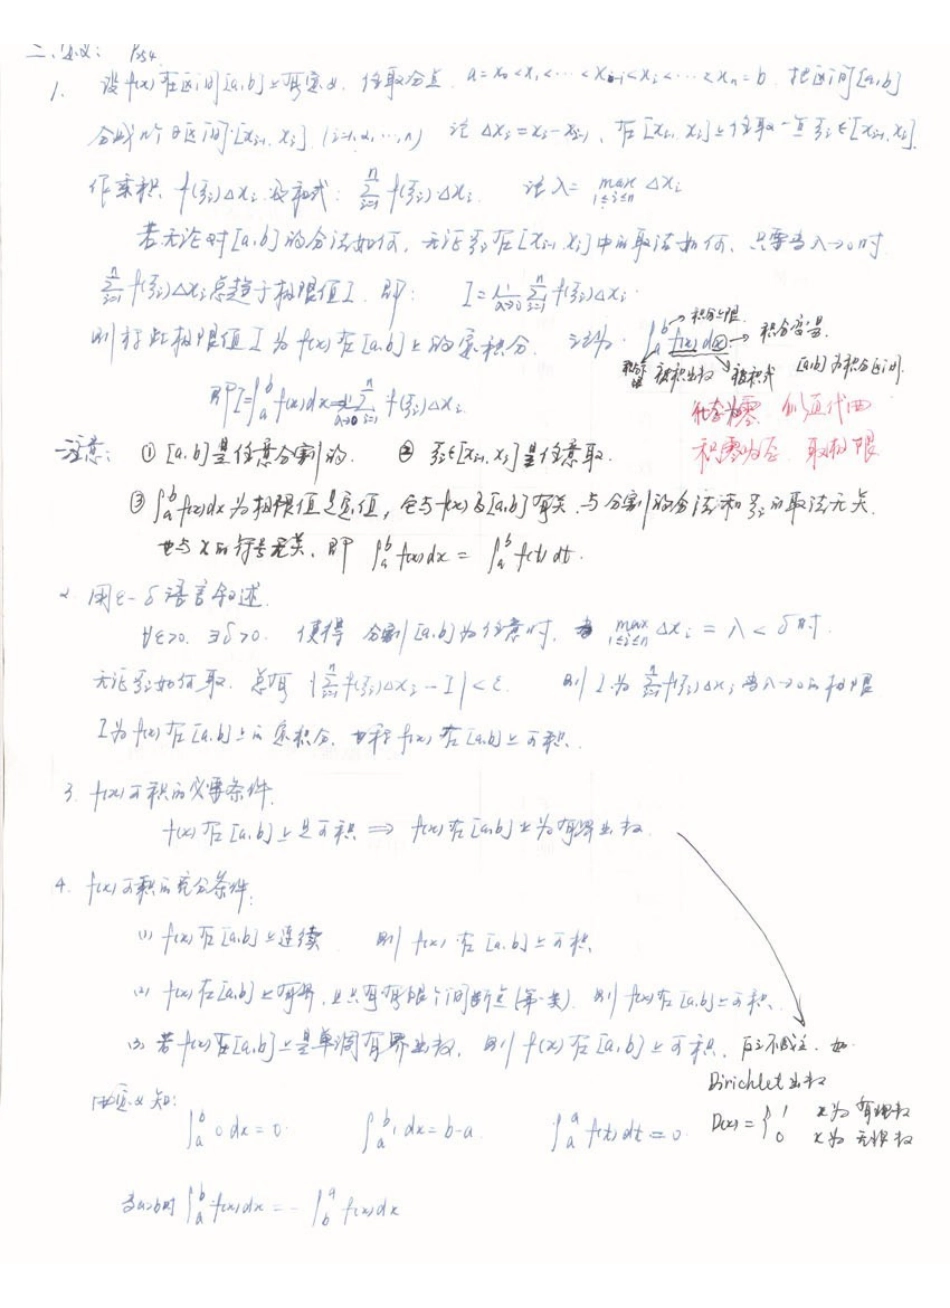 二、定义: P254
1. 设f(x)在区间[a,b]上有定义, 任取分点 a=x₀<x₁<⋯<xᵢ₋₁<xᵢ<⋯<xₙ=b 把区间[a,b]
分成n个小区间[xᵢ₋₁, xᵢ] (i=1,2,⋯,n) 记 Δxᵢ=xᵢ-xᵢ₋₁, 在[xᵢ₋₁, xᵢ]上任取一点ξᵢ∈[xᵢ₋₁, xᵢ]
作乘积 f(ξᵢ)Δxᵢ 及和式: ∑ᵢ₌₁ⁿ f(ξᵢ)Δxᵢ 记 λ= max_{1≤i≤n} Δxᵢ
若无论对[a,b]的分法如何, 无论ξᵢ在[xᵢ₋₁, xᵢ]中的取法如何, 只要当λ→0时
∑ᵢ₌₁ⁿ f(ξᵢ)Δxᵢ总趋于极限值I 即: I=lim_{λ→0} ∑ᵢ₌₁ⁿ f(ξᵢ)Δxᵢ.
则称此极限值I为f(x)在[a,b]上的定积分. 记为: ∫ₐᵇ f(x)dx
积分上限 积分变量
积分下限 被积函数 被积式 [a,b]为积分区间
即I=∫ₐᵇ f(x)dx=lim_{λ→0} ∑ᵢ₌₁ⁿ f(ξᵢ)Δxᵢ
化整为零 似直代曲
积零为整 取极限
注意: ① [a,b]是任意分割的. ② ξᵢ∈[xᵢ₋₁, xᵢ]是任意取.
③ ∫ₐᵇ f(x)dx为极限值是定值, 它与f(x)及[a,b]有关. 与分割的分法和ξᵢ的取法无关.
也与x的符号无关, 即 ∫ₐᵇ f(x)dx = ∫ₐᵇ f(t)dt.
2. 用ε-δ语言叙述.
∀ε>0. ∃δ>0. 使得 分割[a,b]为任意时, 当 max_{1≤i≤n} Δxᵢ = λ < δ时.
无论ξᵢ如何取. 总有 |∑ᵢ₌₁ⁿ f(ξᵢ)Δxᵢ - I| < ε. 则I为 ∑ᵢ₌₁ⁿ f(ξᵢ)Δxᵢ当λ→0的极限
I为f(x)在[a,b]上的定积分. 也称f(x)在[a,b]上可积.
3. f(x)可积的必要条件.
f(x)在[a,b]上是可积 ⟹ f(x)在[a,b]上为有界函数.
4. f(x)可积的充分条件:
(1) f(x)在[a,b]上连续 则 f(x)在[a,b]上可积.
(2) f(x)在[a,b]上有界, 且只有有限个间断点(第一类). 则f(x)在[a,b]上可积.
(3) 若f(x)在[a,b]上是单调有界函数, 则f(x)在[a,b]上可积.
反之不成立. 如
Dirichlet函数
D(x)={ 1 x为有理数
0 x为无理数
由定义知:
∫ₐᵇ 0dx=0. ∫ₐᵇ 1dx=b-a. ∫ₐᵃ f(t)dt=0
当a>b时 ∫ₐᵇ f(x)dx = -∫_bᵃ f(x)dx